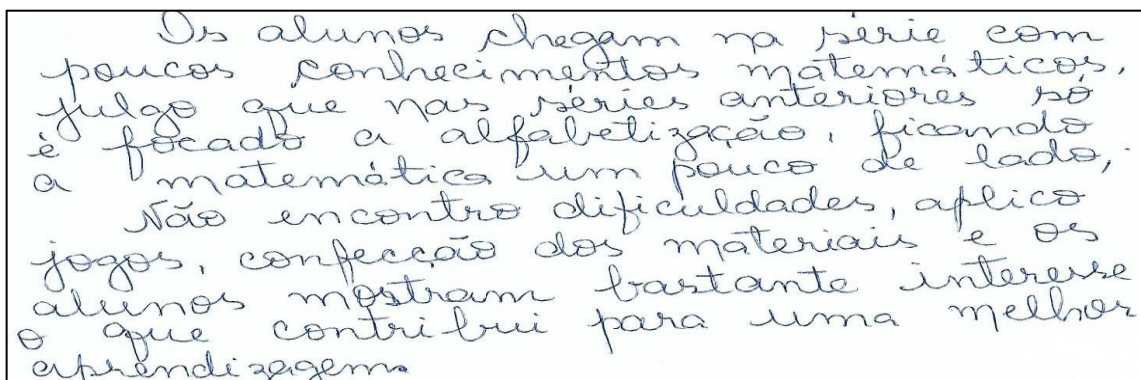 Os alunos chegam na série com
poucos conhecimentos matemáticos,
julgo que nas séries anteriores só
é focado a alfabetização, ficando
a matemática um pouco de lado,
Não encontro dificuldades, aplico
jogos, confecção dos materiais e os
alunos mostram bastante interesse
o que contribui para uma melhor
aprendizagem.